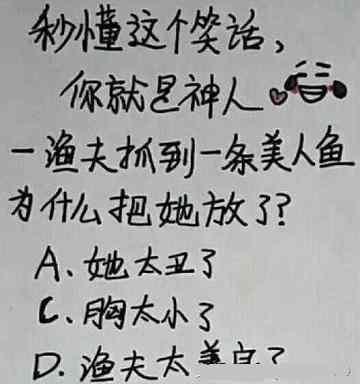 秒懂这个笑话，
你就是神人
一渔夫抓到一条美人鱼
为什么把她放了？
A、她太丑了
C、胸太小了
D、渔夫太善良了